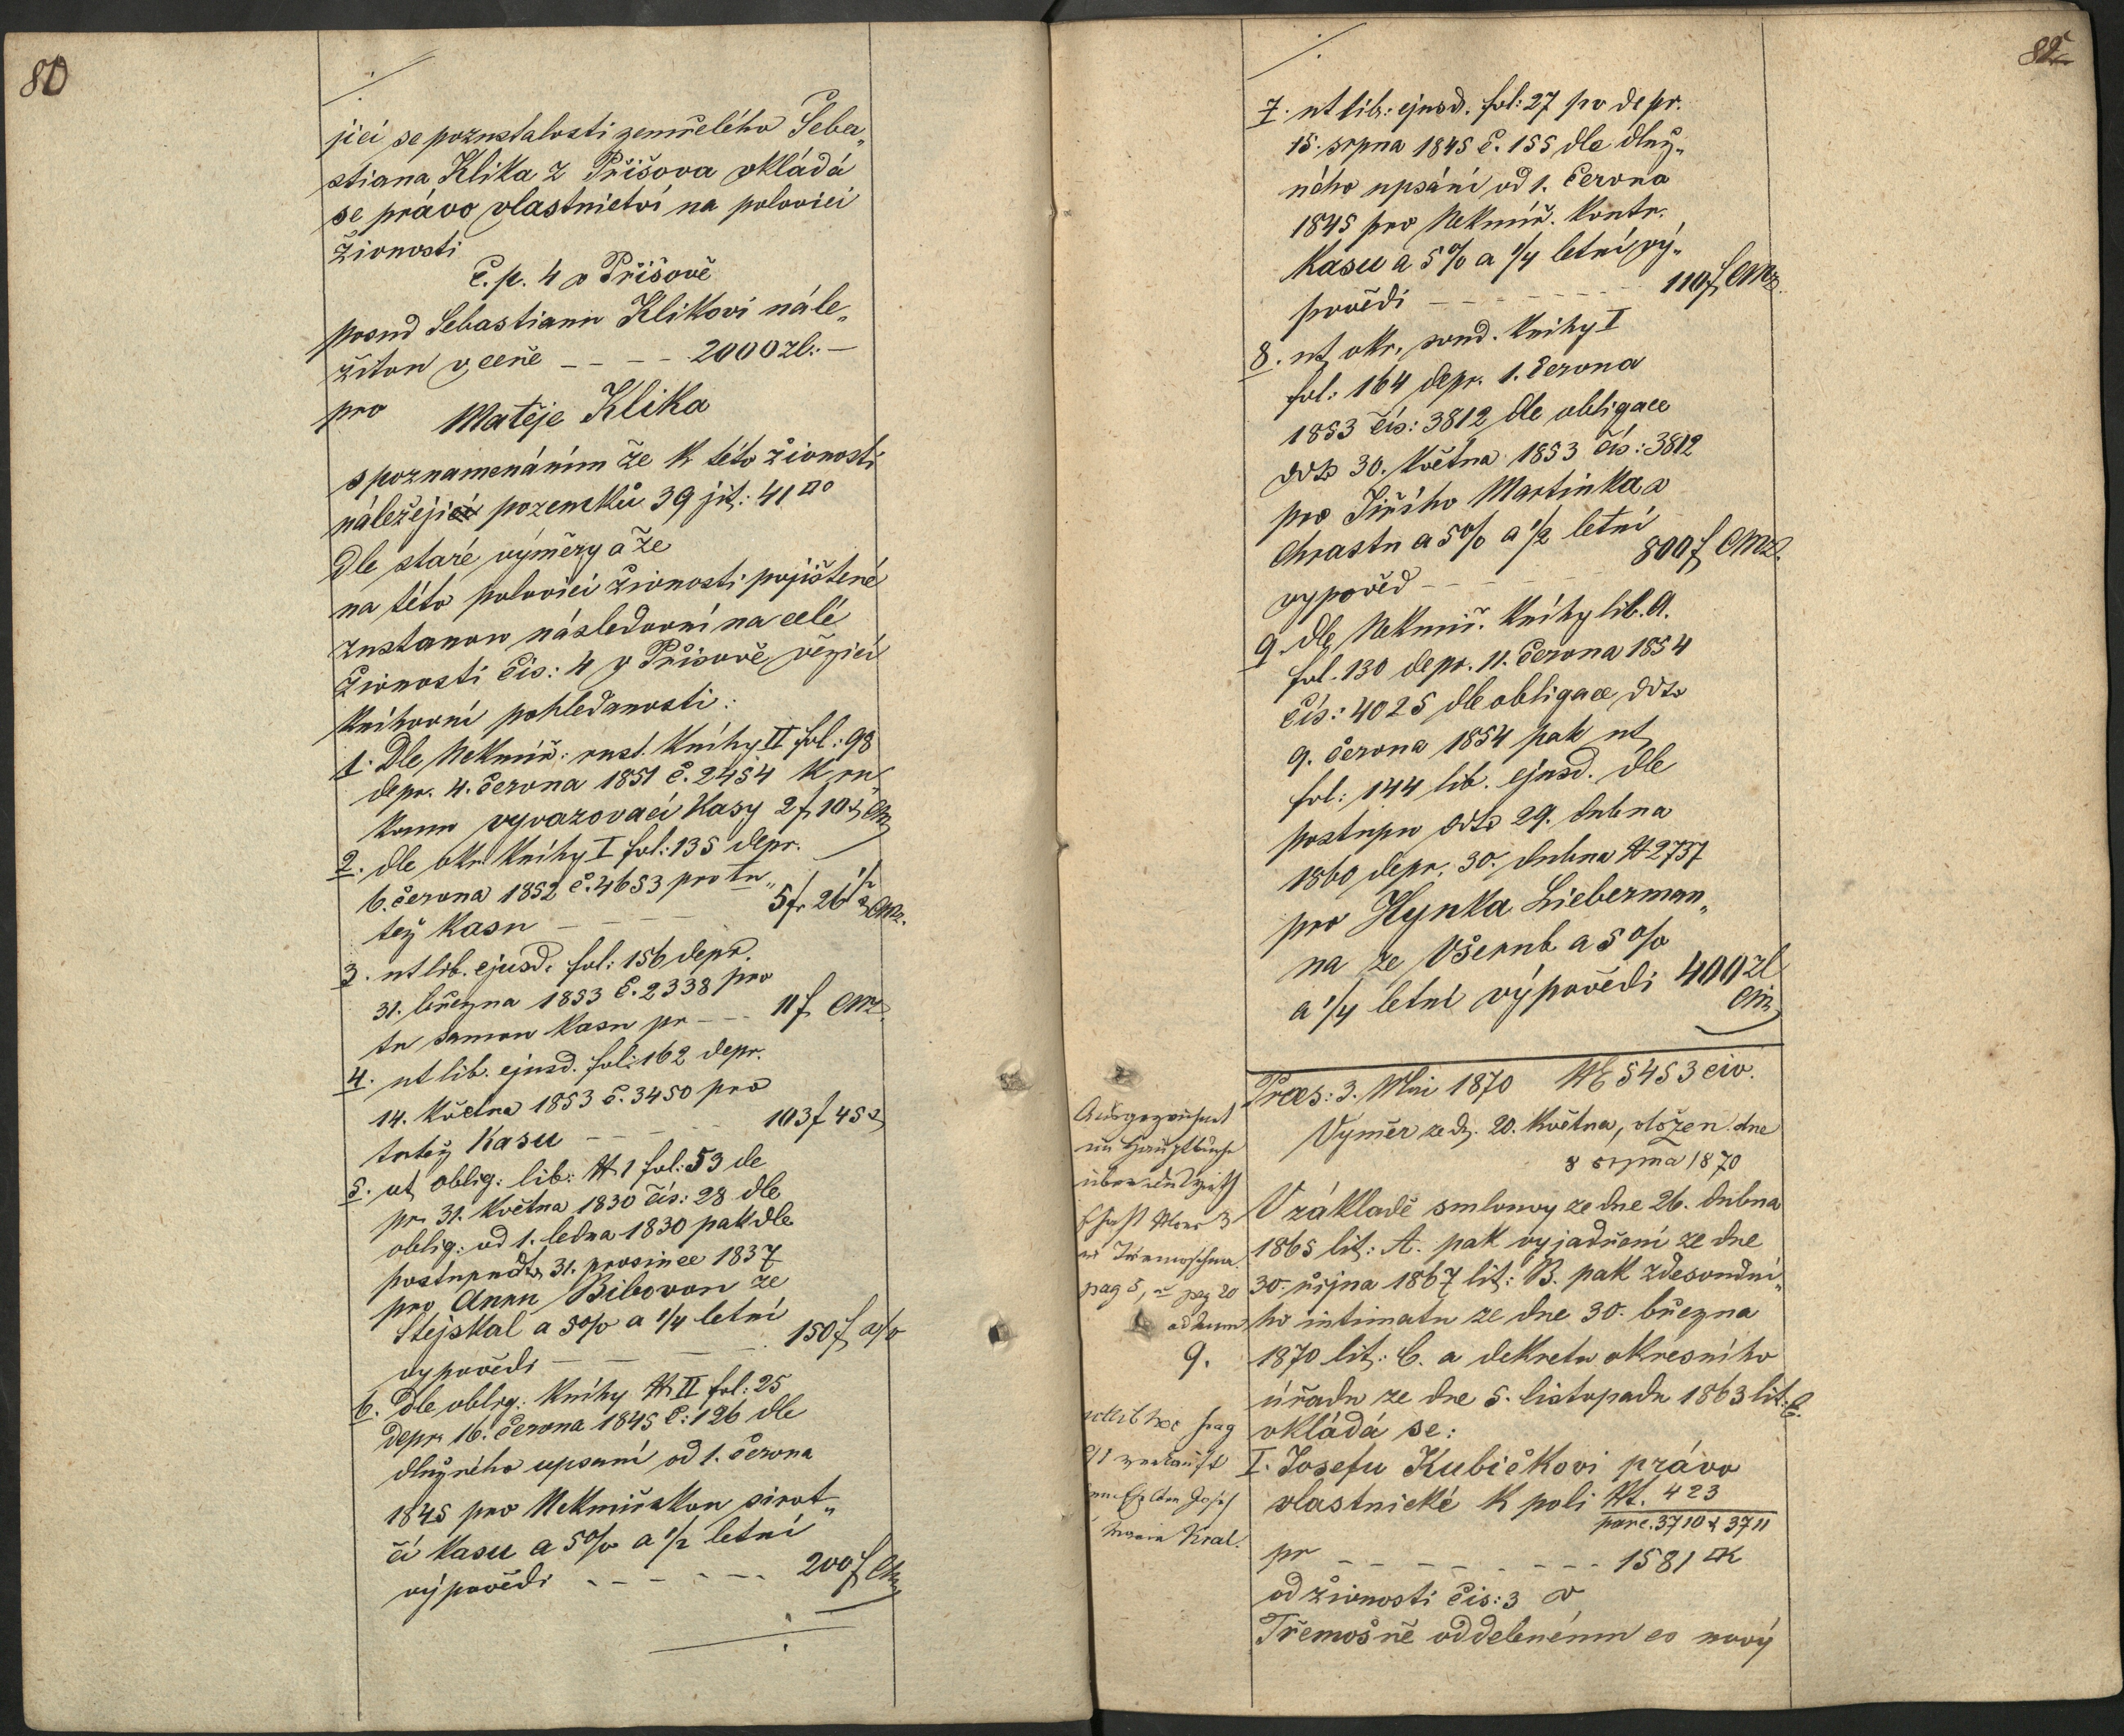 80
jící se pozustalosti zemřelého Seba„
stiana Klika z Přišova vkládá
se právo vlastnictví na polovici
živnosti
č. p. 4 v Přišově
posud Sebastianu Klikovi nále„
žitou v ceně - - - 2000 zl. -
pro Matěje Klika
s poznamenáním že k této živnosti
náležejí pozemků 39 jit: 41 □°
dle staré výměry a že
na této polovici živnosti pojištené
zustanou následovní na celé
živnosti čis: 4 v Přisově vězící
knihovní pohledanosti:
1. Dle Nekmíř: rust. knihy II fol: 98
depr. 4. června 1851 č. 2454 k ru„
konu vyvazovací kasy 2 f 10 x CM
2. dle okr. knihy I fol: 135 depr.
6. června 1852 č. 4653 pro tu„
též kasu - - - 5 f 26 1/2 x CMz.
3. ut lib. ejusd. fol: 156 depr.
31. března 1853 č. 2338 pro
tu samou kasu pr - - - 11 f CMz.
4. ut lib. ejusd. fol: 162 depr.
14. května 1853 č. 3450 pro
tutéž kasu - - - 103 f 45 x
5. ut oblig: lib: № 1 fol: 53 de
pr. 31. května 1830 čís: 28 dle
oblig: od 1. ledna 1830 pak dle
postupu ddto 31. prosince 1837
pro Annu Bibovou ze
Stejskal a 5% a 1/4 letní
vypovědi - - - 150 f
6. Dle oblig: knihy № II fol: 25
depr. 16. června 1845 č: 126 dle
dlužného upsaní od 1. června
1845 pro Nekmiřskou sirot„
čí kasu a 5% a 1/2 letní
výpovědi - - - 200 f CM
82
7. ut lib: ejusd. fol: 27 po depr.
15. srpna 1845 č. 155 dle dluž„
ného upsání od 1. června
1845 pro Nekmíř. kontr.
kasu a 5% a 1/4 letní vý„
povědi - - - 110 f CMz.
8. ut okr. soud. knihy I
fol: 164 depr. 1. června
1853 čís: 3812 dle obligace
ddto 30. května 1853 čís: 3812
pro Jiřího Martinka v
Chrastu a 5% a 1/2 letní
vypověd - - - 800 f CMz.
9. dle Nekmiř. knihy lib. A.
fol. 130 depr. 11. června 1854
čís: 4025 dle obligace ddto
9. června 1854 pak ut
fol: 144 lib. ejusd. dle
postupu ddto 29. dubna
1860 depr. 30. dubna № 2737
pro Hynka Lieberman„
na ze Všerub a 5%
a 1/4 letní výpovědi 400 zl
CM
Præs: 3. Mai 1870 № 5453 civ.
Výměr ze d. 20. května, vložen dne
8 srpna 1870
V základě smlouvy ze dne 26. dubna
1865 lit: A. pak vyjadření ze dne
30. října 1867 lit: B. pak zdesoudní„
ho intimatu ze dne 30. března
1870 lit: C. a dekretu okresního
úřadu ze dne 5. listopadu 1863 lit:
vkládá se:
I. Josefu Kubičkovi právo
vlastnické k poli №. 423
parc. 3710 & 3711
pr - - - 1581 □K
od živnosti čis: 3 v
Třemošně oddelenému co nový
Ausgezeichnet
im Hauptbuche
Nro 3
pag 5, pag 20
9.
Josef
Maria Kral.